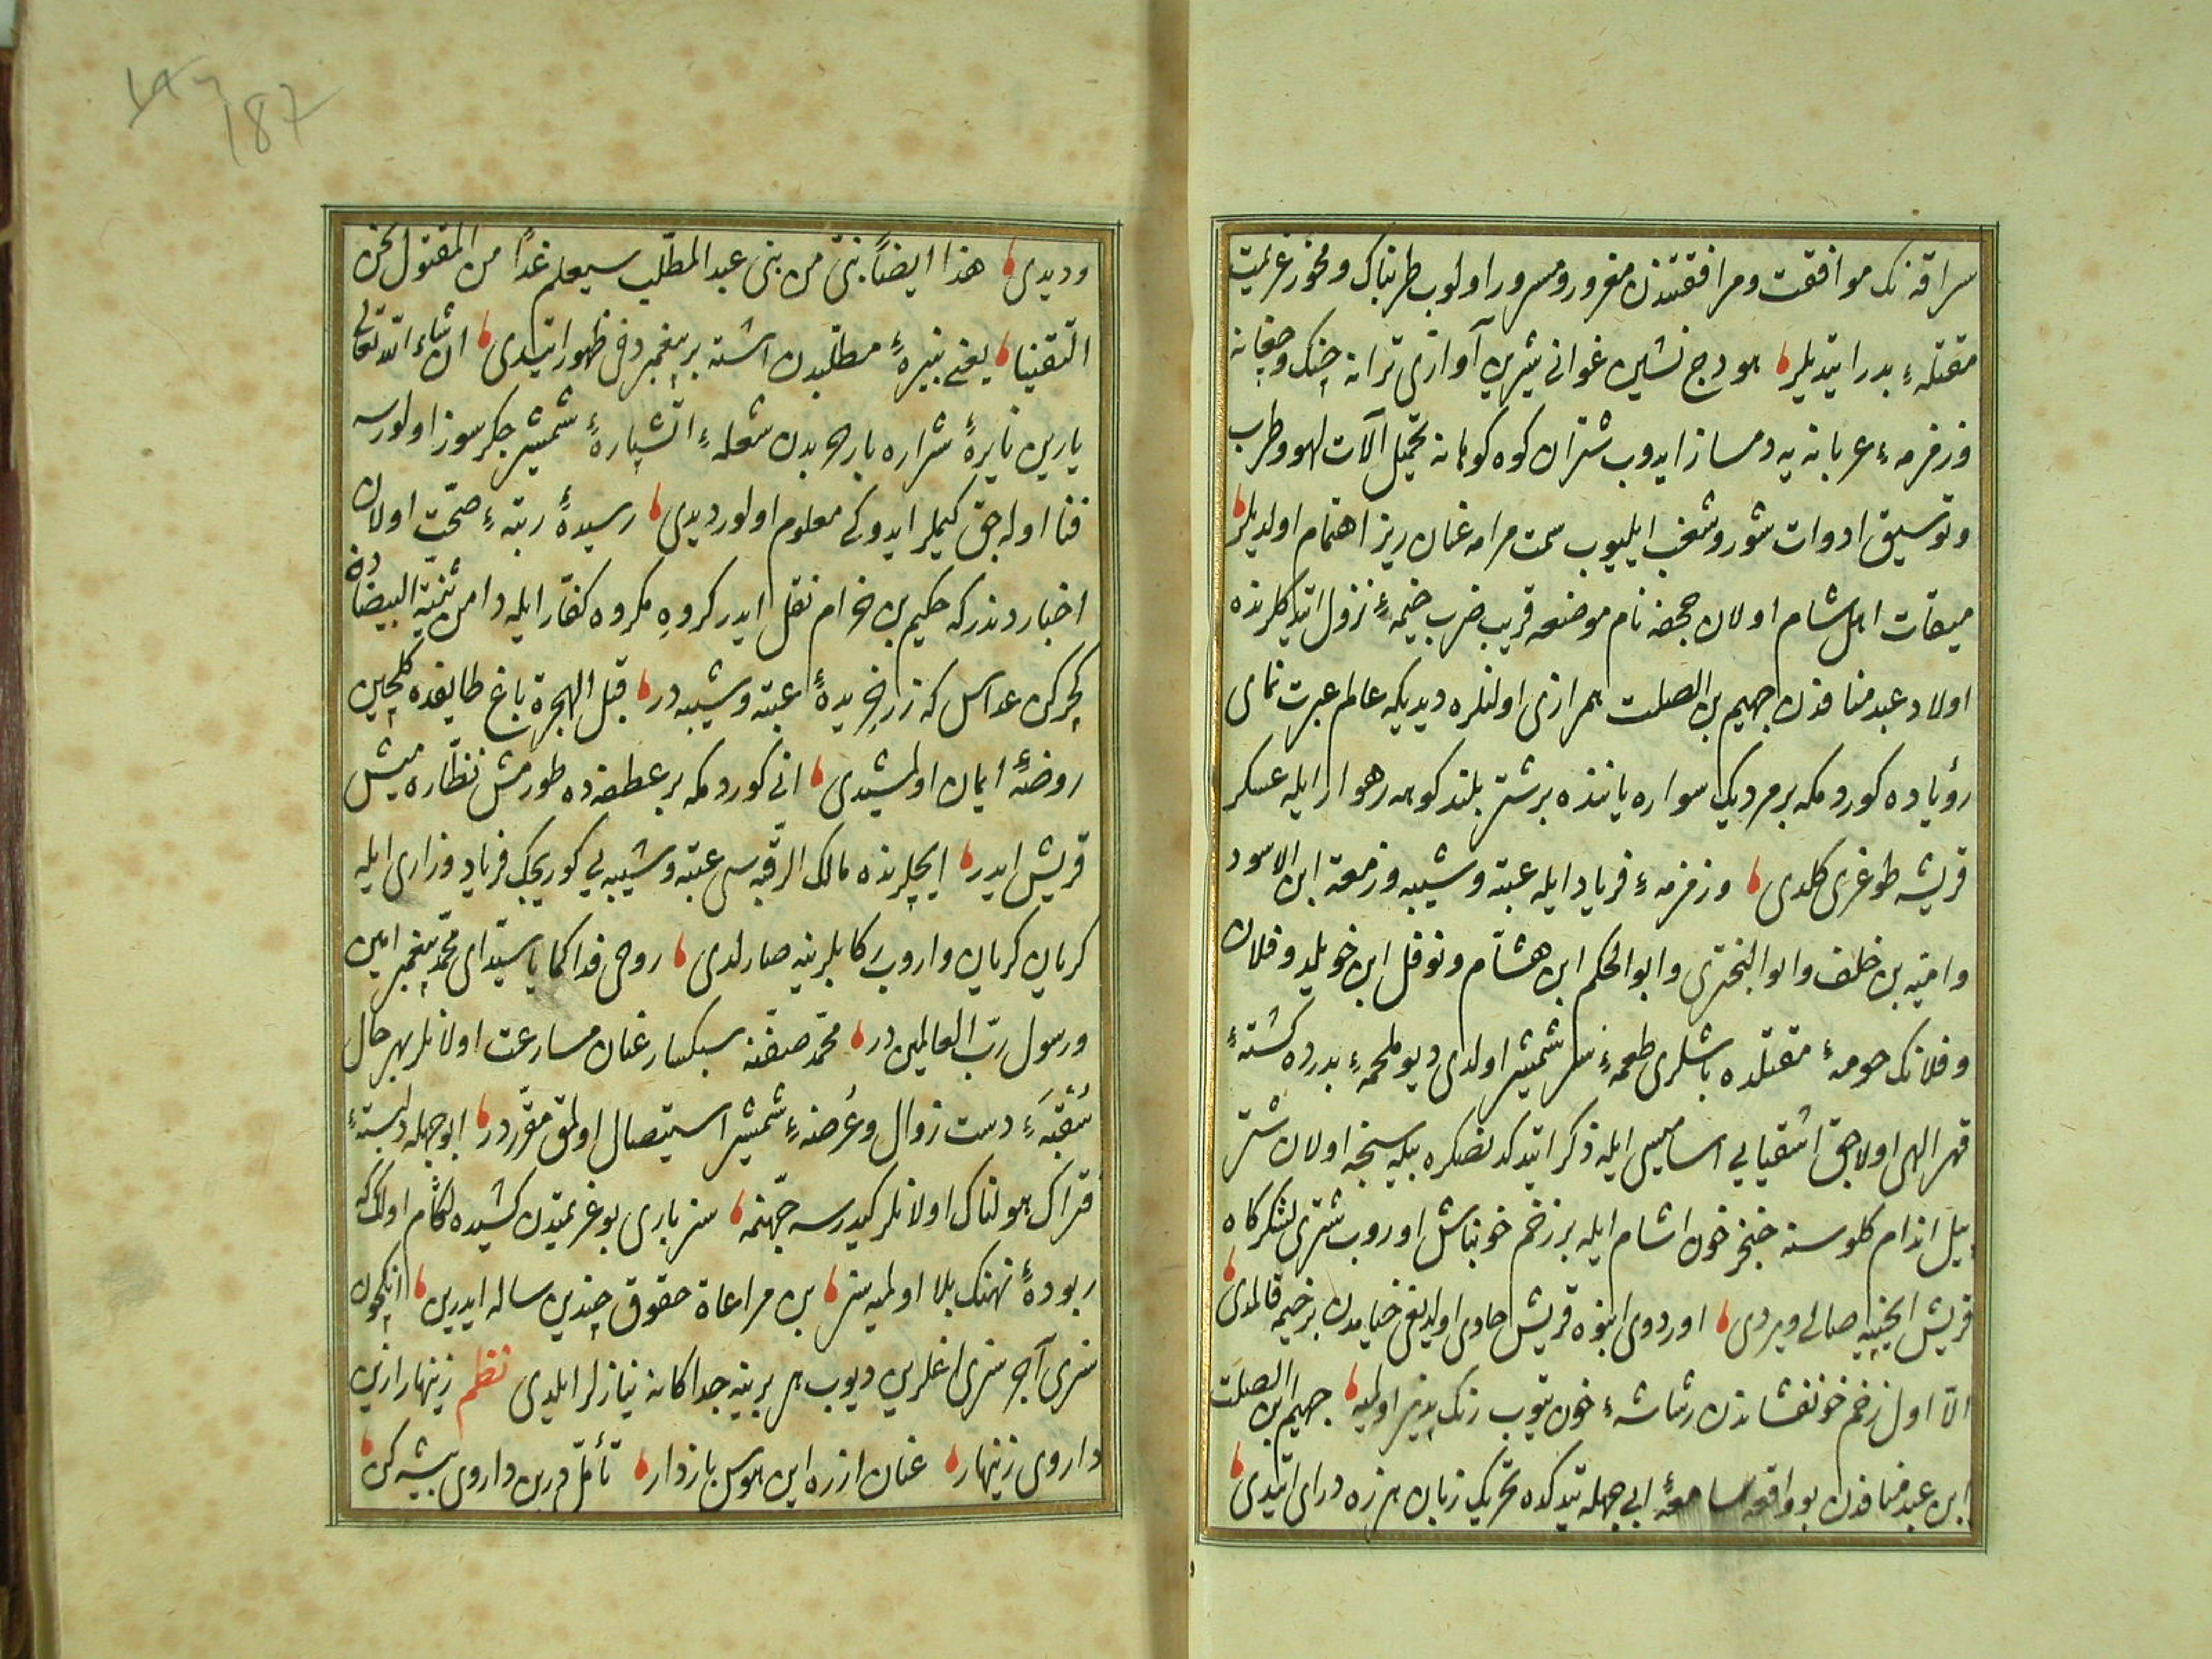 سراقه نك موافقت و مرافقتندن مغرور و مسرور اولوب طربناك و مخمور عزیمت
مقتلهء بدر ایتدیلر هودج نشین غوانی شیرین آوازی ترانه چنك و چغانه
و زمزمهء عربانه یه دمساز ایدوب شتران كوه كوهانه تحمیل آلات لهو و طرب
و توسیق ادوات شور و شغب ایلیوب سمت مرامه عنان ریز اهتمام اولدیلر
میقات اهل شام اولان جحفه نام موضعه قریب ضرب خیمهء نزول ایتدكلرنده
اولاد عبد منافدن جهیم بن الصلت همرازی اولنلره دیدیكه عالم عبرت نمای
رؤیاده كوردمكه بر مرد یك سواره یاننده بر شتر بلند كوهه رهوار ایله عسكر
قریشه طوغری كلدی و زمزمهء فریاد ایله عتبه و شیبه و زمعة ابن الاسود
و امیّه بن خلف و ابو البختری و ابو الحكم ابن هشام و نوفل ابن خویلد و فلان
و فلانك حومهء مقتلده باشلری طعمهء شمشیر اولدی دیو ملحمهء بدرده كشتهء
قهر الهی اولاجق اشقیایی اسامیسی ایله ذكر ایتدكدنصكره بیله سنجه اولان شتر
پیل اندام كلوسنه خنجر خون اشام ایله بر زخم خونپاش اوروب شتری لشكركاه
قریش ایچنیه صالی ویردی اوردوی انبوه قریش حاوی اولدیغی خیامدن بر خیمه قالمدی
الّا اول زخم خونفشاندن رشاشهء خون یتوب رنك پذیر اولمیه جهیم ابن الصلت
ابن عبد منافدن بو واقعه سامعهء ابی جهله یتدكده تحریك زبان هرزه درای ایتدی
187
و دیدی هذا ایضاً نبیّ من بنی عبد المطلّب سیعلم غداً من المقتول نحن
التقینا یعنی نبیرهء مطلّبدن اشته بر پیغمبر دخی ظهور ایتدی ان شاء الله تعالی
یارین نایرهء شراره بار حربدن شعلهء اتشپارهء شمشیر جكرسوز اولورسه
فنا اوله جق كیملر ایدوكی معلوم اولور دیدی رسیدهء رتبهء صحّت اولان
اخباردندر كه حكیم بن حزام نقل ایدر كروه مكروه كفّار ایله دامن ثنیّة البیضادن
كچركن عداس كه زرخریدهء عتبه و شیبه در قبل الهجرة باغ طایفده كلچین
روضهء ایمان اولمشیدی انی كوردمكه بر عطفه ده طورمش نظّاره جیش
قریش ایدر ایچلرنده مالك الرقبه سی عتبه و شیبه یی كوریجك فریاد و زاری ایله
كریان كریان واروب ركابلرینه صارلدی روحی فداكما یا سیّدای محمّد پیغمبر امین
و رسول ربّ العالمین در محمّد صفّنه سبكسار عنان مسارعت اولانلر بهر حال
دست زوال و عرضهء شمشیر استیصال اولمق مقرّردر ابو جهله دلبستهء
فتراك هولناك اولانلر كیدرسه جهنّمه سز باری بو عزیمتدن كشیده لكام اولك كه
ربودهء نهنك بلا اولمیه سز بن مراعاة حقوق چندین ساله ایدرین انكچون
سزی آجر سزی اغلرین دیوب هر برینه جداكانه نیازلر ایلدی نظم زینهار ازین
داروی زینهار عنان از ره این هوس باز دار تأمّل درین داروی بیشه كن